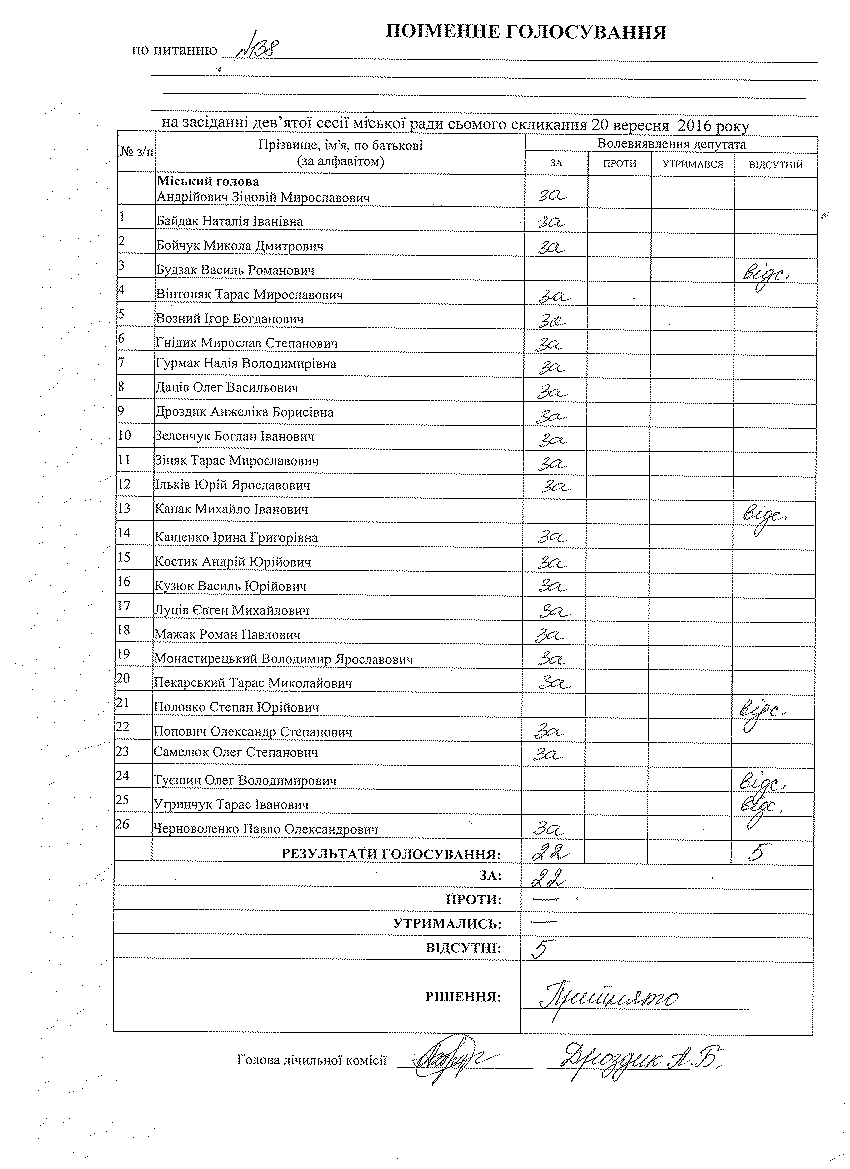 ПОІМЕННЕ ГОЛОСУВАННЯ
по питанню №38
на засіданні дев’ятої сесії міської ради сьомого скликання 20 вересня 2016 року
№ з/п Прізвище, ім’я, по батькові (за алфавітом) Волевиявлення депутата
ЗА ПРОТИ УТРИМАВСЯ ВІДСУТНІЙ
Міський голова
Андрійович Зіновій Мирославович за
1 Байдак Наталія Іванівна за
2 Бойчук Микола Дмитрович за
3 Будзак Василь Романович відс.
4 Вінтоняк Тарас Мирославович за
5 Возний Ігор Богданович за
6 Гнідик Мирослав Степанович за
7 Гурмак Надія Володимирівна за
8 Даців Олег Васильович за
9 Дроздик Анжеліка Борисівна за
10 Зеленчук Богдан Іванович за
11 Зіняк Тарас Мирославович за
12 Ільків Юрій Ярославович за
13 Капак Михайло Іванович відс.
14 Кащенко Ірина Григорівна за
15 Костик Андрій Юрійович за
16 Кузюк Василь Юрійович за
17 Луців Євген Михайлович за
18 Мажак Роман Павлович за
19 Монастирецький Володимир Ярославович за
20 Пекарський Тарас Миколайович за
21 Половко Степан Юрійович відс.
22 Попович Олександр Степанович за
23 Самелюк Олег Степанович за
24 Туєшин Олег Володимирович відс.
25 Угринчук Тарас Іванович відс.
26 Черноволенко Павло Олександрович за
РЕЗУЛЬТАТИ ГОЛОСУВАННЯ: 22 5
ЗА: 22
ПРОТИ: —
УТРИМАЛИСЬ: —
ВІДСУТНІ: 5
РІШЕННЯ: Прийнято
Голова лічильної комісії Дроздик А.Б.